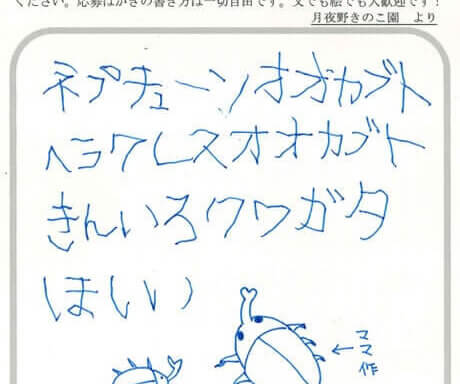 ください。応募はがきの書き方は一切自由です。文でも絵でも大歓迎です!
月夜野きのこ園 より
ネプチューンオオカブト
ヘラクレスオオカブト
きんいろクワガタ
ほしい
←ママ作